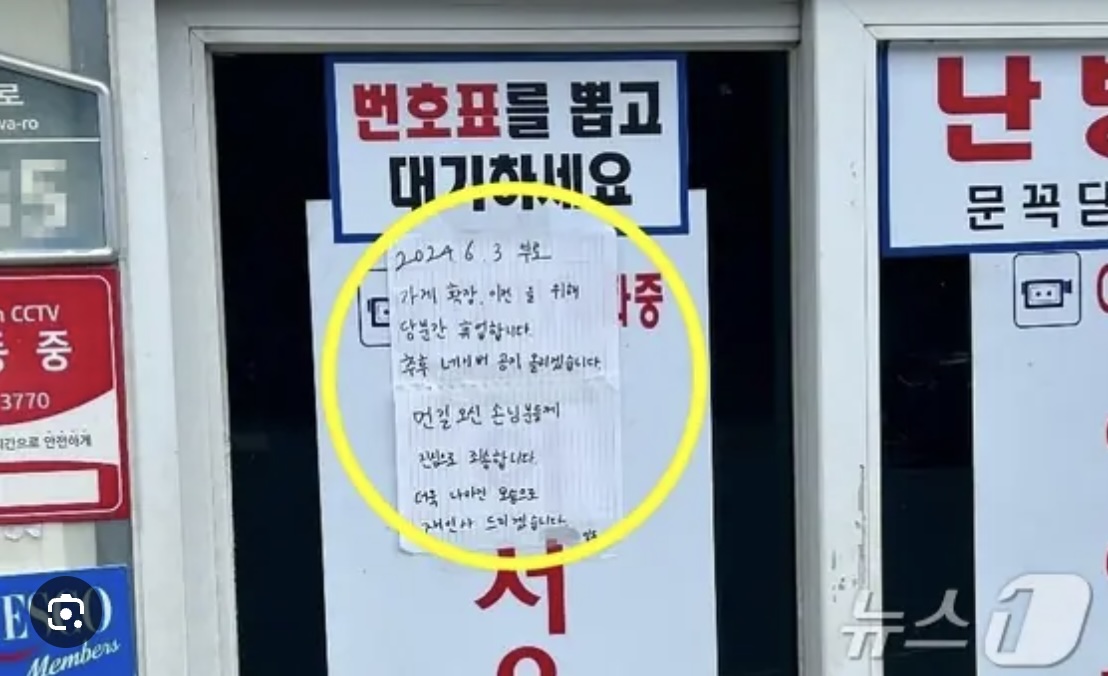 로
wa-ro
CCTV
중
3770
간으로 안전하게
ESCO
Members
번호표를 뽑고
대기하세요
2024 6. 3 부로
가게 확장, 이전 을 위해
당분간 휴업합니다.
추후 네이버 공지 올리겠습니다.
먼길 오신 손님분들께
진심으로 죄송합니다.
더욱 나아진 모습으로
재인사 드리겠습니다
중
서
난
문 꼭 닫
뉴스1